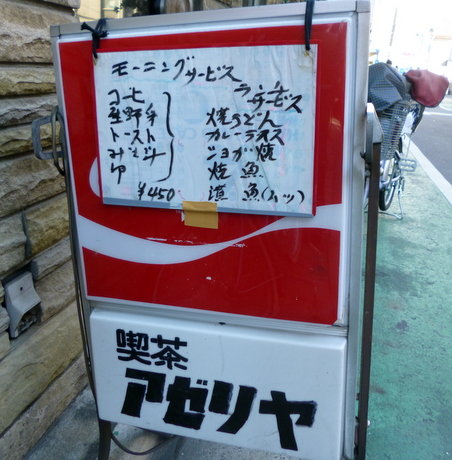 モーニングサービス
コーヒ
生野菜
トースト
みそ汁
ゆ
¥450
ランチ
サービス
焼うどん
カレーライス
ショガ焼
焼魚
漬魚(ムツ)
喫茶
アゼリヤ